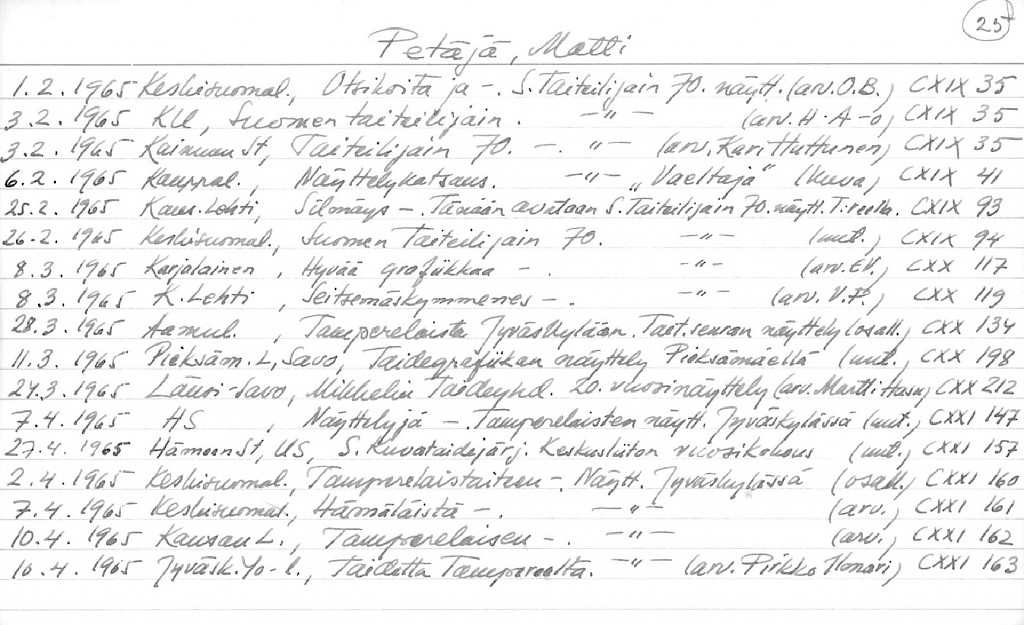 25
Petäjä, Matti
1.2.1965 Keskisuomal., Otsikoita ja -. S.Taiteilijain 70. näytt. (arv. O.B.) CXIX 35
3.2.1965 KU, Suomen taiteilijain. -"- (arv. H.A-o) CXIX 35
3.2.1965 Kainuun St, Taiteilijain 70. -. -"- (arv. Kari Huttunen) CXIX 35
6.2.1965 Kauppal., Näyttelykatsaus. -"- „Vaeltaja" (kuva) CXIX 41
25.2.1965 Kans.Lehti, Silmäys -. Tänään avataan S.Taiteilijain 70.näytt. T:reella. CXIX 93
26.2.1965 Keskisuomal., Suomen Taiteilijain 70. -"- (uut.) CXIX 94
8.3.1965 Karjalainen, Hyvää grafiikkaa -. -"- (arv. E.V.) CXX 117
8.3.1965 K.Lehti, Seitsemäskymmenes -. -"- (arv. V.P.) CXX 119
28.3.1965 Aamul., Tamperelaista Jyväskylään. Tait.seuran näyttely (osall.) CXX 134
11.3.1965 Pieksäm.L, Savo, Taidegrafiikan näyttely Pieksämäellä (uut., CXX 198
24.3.1965 Länsi-Savo, Mikkelin Taideyhd. 20. vuosinäyttely (arv. Martti Hasu) CXX 212
7.4.1965 HS, Näyttelyjä -. Tamperelaisten näytt. Jyväskylässä (uut., CXXI 147
27.4.1965 Hämeen St, US, S. Kuvataidejärj. Keskusliiton vuosikokous (uut.) CXXI 157
2.4.1965 Keskisuomal., Tamperelaistaiteen -. Näytt. Jyväskylässä (osall.) CXXI 160
7.4.1965 Keskisuomal., Hämäläistä -. -"- (arv.) CXXI 161
10.4.1965 Kansan L., Tamperelaisen -. -"- (arv.) CXXI 162
10.4.1965 Jyväsk.Yo-l., Taidetta Tampereelta. -"- (arv. Pirkko) CXXI 163